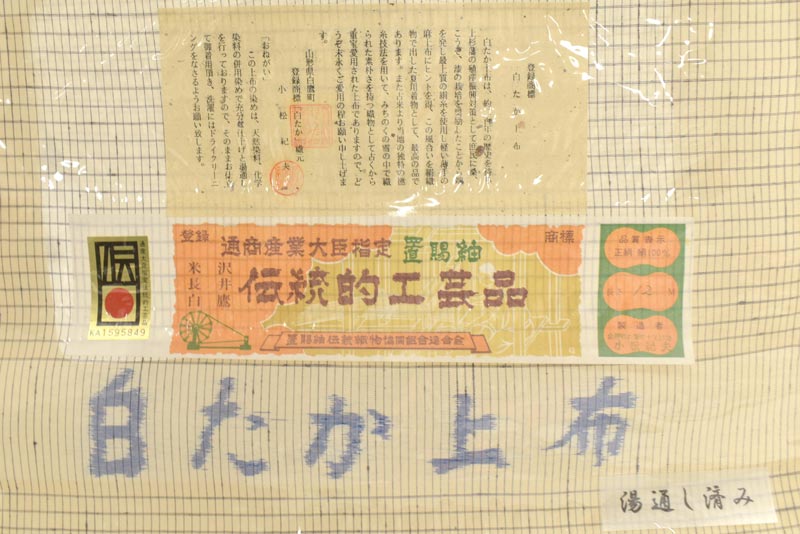 登録商標
白たか上布
白たか上布は、約 年の歴史を持
上杉藩の殖産振興対策として庶民に桑、
こうぞ、漆の栽培を奨励したことから
を発し最上質の絹糸を使用し軽い薄手の
麻上布にヒントを得、この風合いを絹織
物で出した夏川着物として、最高の品で
あります。また古来より当地の独特の
糸技法を用いて、みちのくの雪の中で織
られた素朴さを持つ織物として古くから
重宝愛用された上布でありますので、ど
うぞ末永くご愛用の程お願い申し上げま
す。
山形県白鷹町
登録商標 白たか 織元
小松紀夫
『おねがい』
この上布の染めは、天然染料、化学
染料の併用染めで充分糊仕上げと湯通し
を行っておりますので、そのままお仕立
て御着用頂き、洗濯にはドライクリーニ
ングをなさるようお願い致します。
伝
KA1595849
登録
商標
通商産業大臣指定 置賜紬
伝統的工芸品
沢井鷹
米長白
置賜紬伝統織物協同組合連合会
品質表示
正絹 絹100%
長さ 12 M
製造者
小松紀夫
白たか上布
湯通し済み